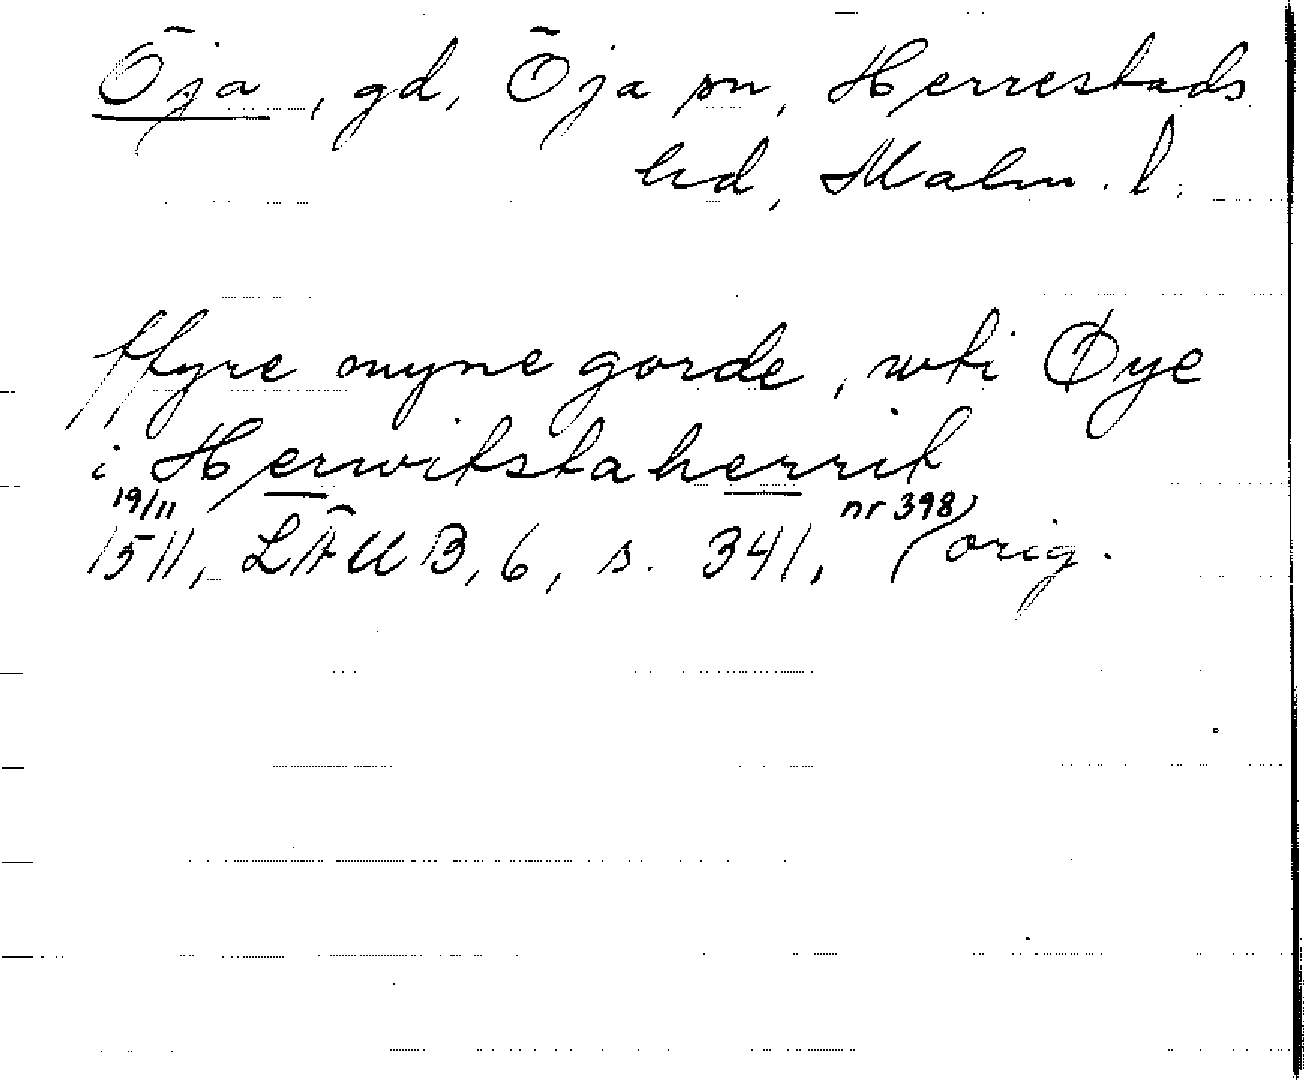 Öja, gd, Öja sn, Herrestads
hd, Malm. l.
ffyre myne gorde, wti Øye
i Herwitstaherrit
19/11 nr 398
1511, LÄUB, 6, s. 341, (orig.